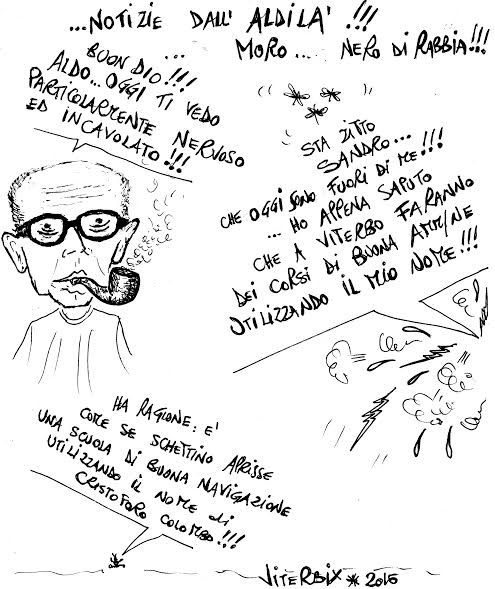 ...NOTIZIE DALL' ALDILA' !!!
MORO... NERO DI RABBIA!!!
BUON DIO!!!
ALDO...OGGI TI VEDO
PARTICOLARMENTE NERVOSO
ED INCAVOLATO!!!
STA ZITTO
SANDRO...
CHE OGGI SONO FUORI DI ME!!!
...HO APPENA SAPUTO
CHE A VITERBO FARANNO
DEI CORSI DI BUONA AMM.NE
UTILIZZANDO IL MIO NOME!!!
HA RAGIONE: E'
COME SE SCHETTINO APRISSE
UNA SCUOLA DI BUONA NAVIGAZIONE
UTILIZZANDO IL NOME di
CRISTOFORO COLOMBO!!!
VITERBIX * 2016